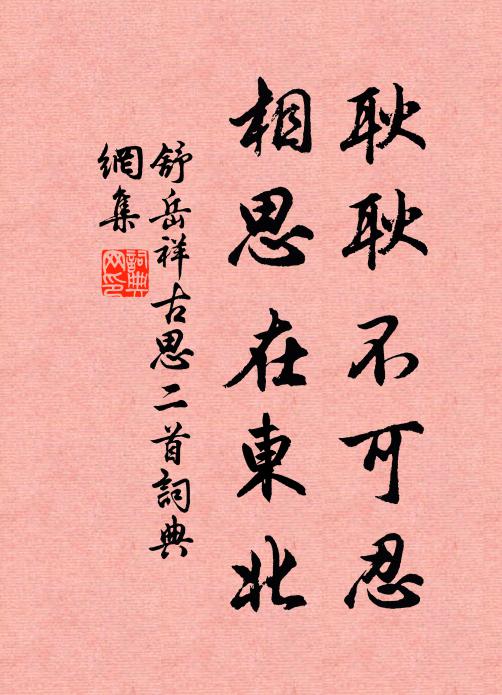 耿耿不可忍
相思在東北
舒岳祥古思二首詞典
網集
詞典
网印